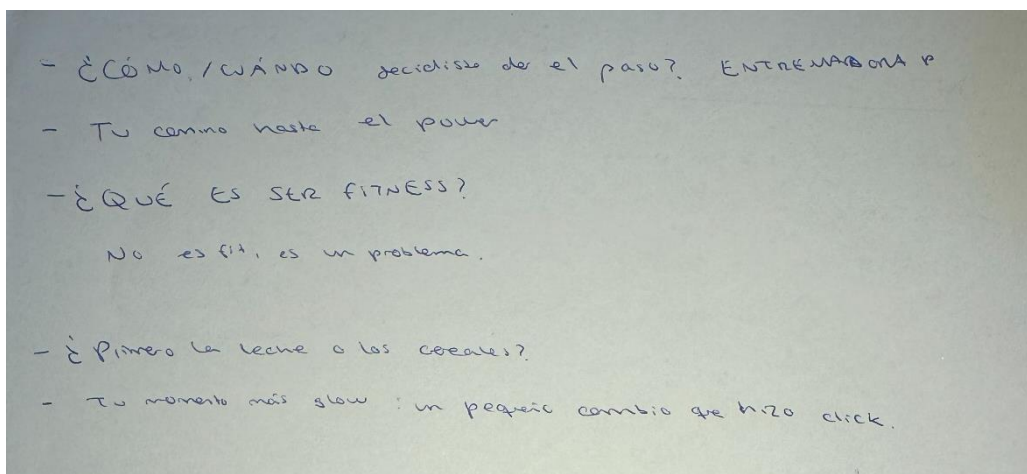 - ¿CÓMO, / CUÁNDO decidiste dar el paso? ENTRENADORA P
- Tu camino hasta el power
- ¿QUÉ ES SER FITNESS?
No es fit, es un problema.
- ¿Primero la leche o los cereales?
- Tu momento más glow : un pequeño cambio que hizo click.